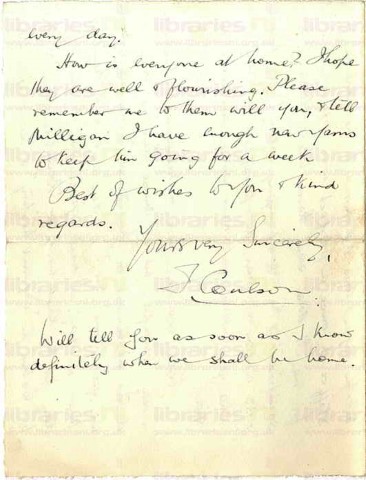 every day.
How is everyone at home? I hope
they are well & flourishing. Please
remember me to them will you, & tell
Milligan I have enough new yarns
to keep him going for a week
Best of wishes to you & kind
regards.
Yours very Sincerely,
Coulson.
Will tell you as soon as I know
definitely when we shall be home.